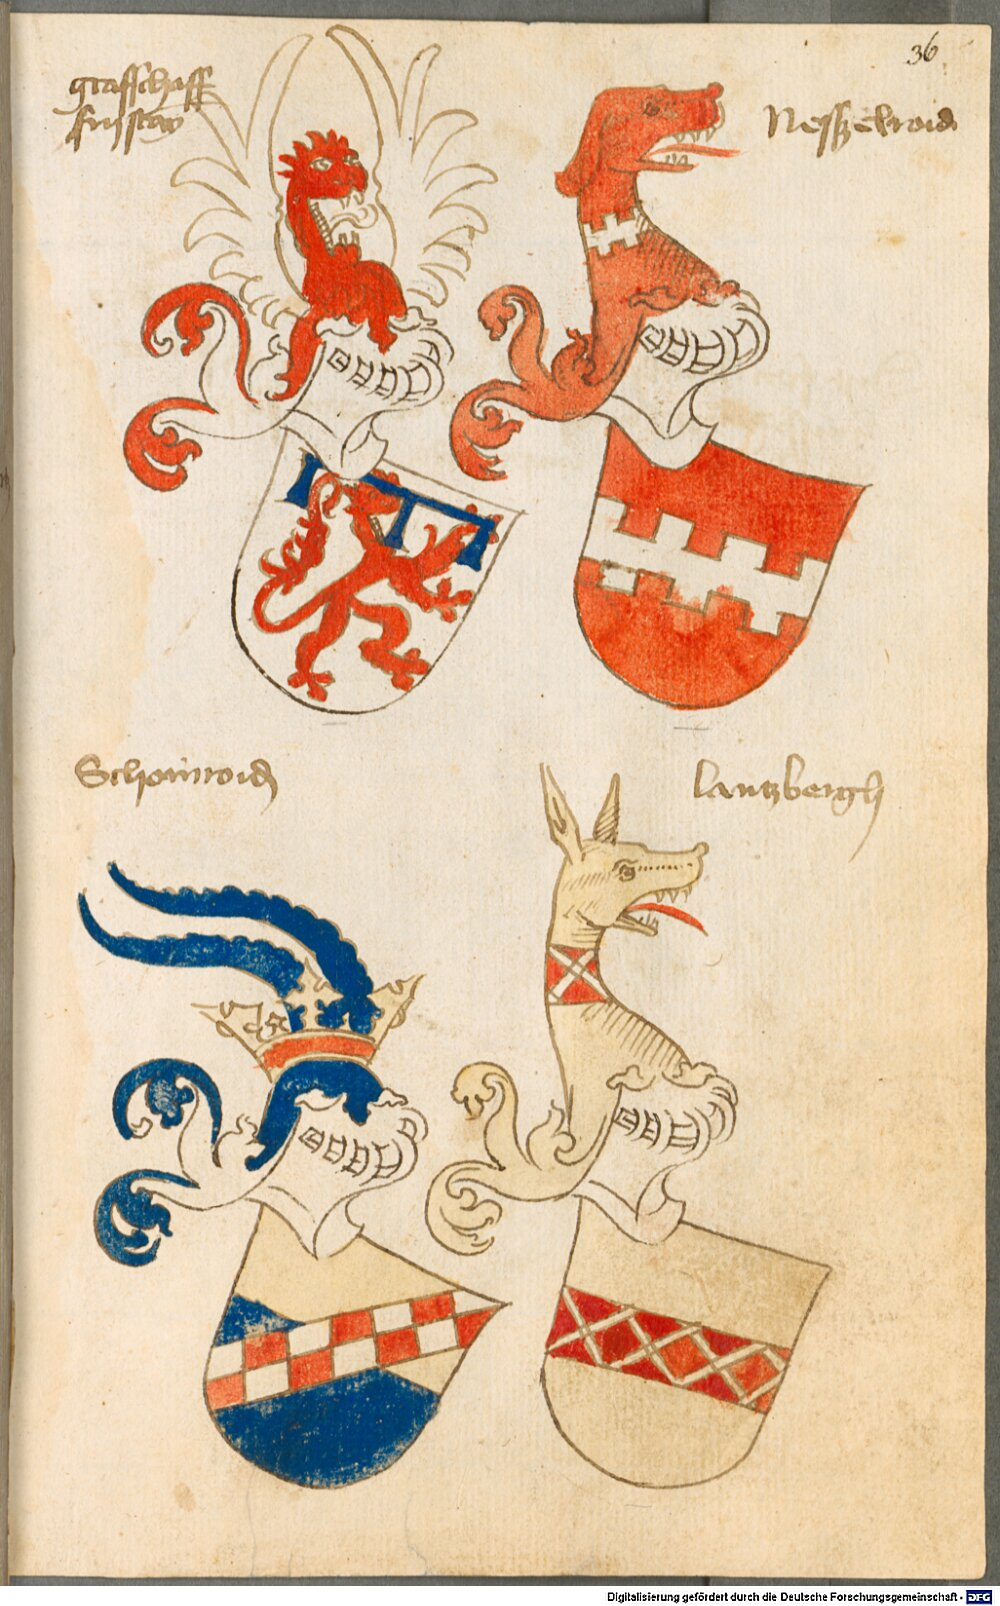 36
graffschaff
Nesszelroid
Schoinroid
lantzbergh
Digitalisierung gefördert durch die Deutsche Forschungsgemeinschaft - DFG